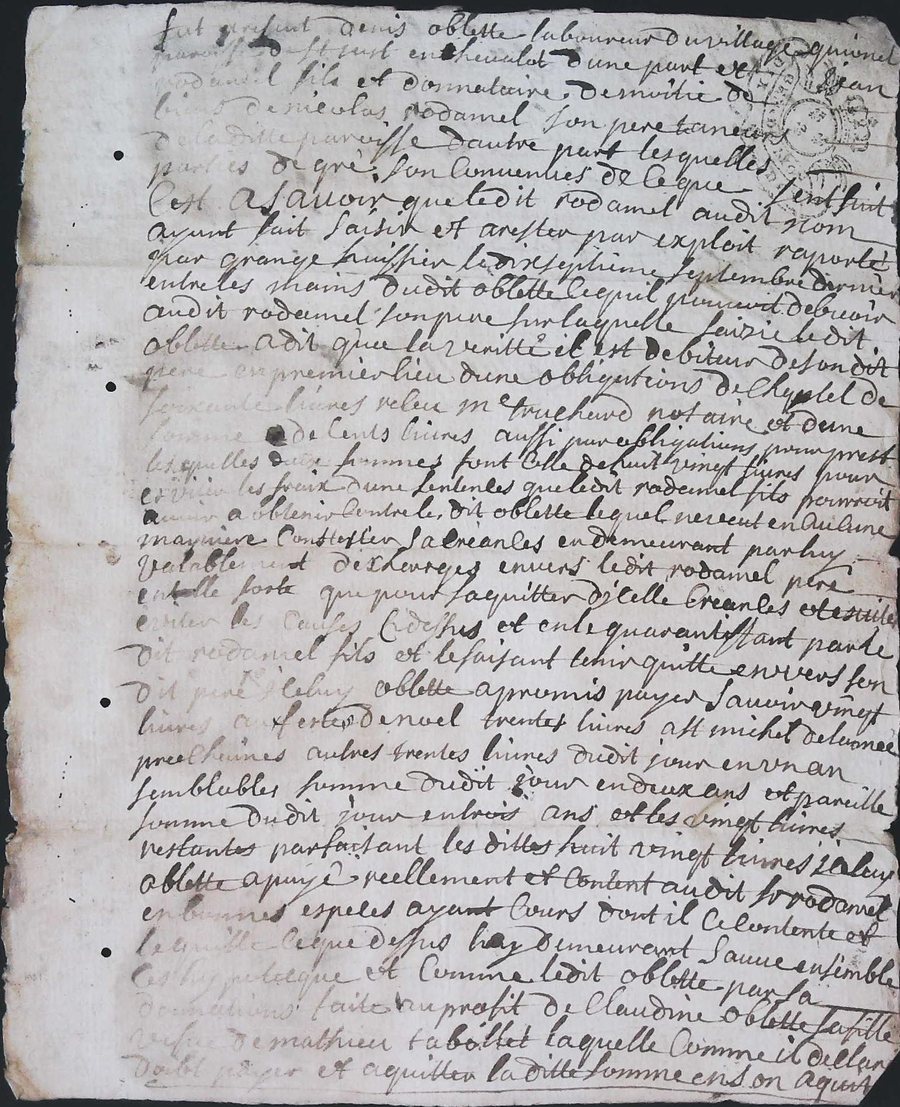 fut present denis oblette laboureur du village quionel
paroisse de st just en chevalet dune part et jean
rodamel fils et donnataire de moitie de
biens de nicolas rodamel son pere taneur
de la ditte paroisse dautre part lesquelles
parties de gré son Convenues de Ceque sentsuit
Cest a savoir que ledit rodamel audit nom
ayant fait saisir et arester par exploit raporté
par grange huissier le dixseptieme septembre dernier
entre les mains dudit oblette Cequil pouvoit debvoir
audit rodamel son pere sur laquelle saizie ledit
oblette a dit que la veritté il est debiteur de son dit
pere en premier lieu dune obligations de Cheptel de
soixante livres releu me truchard notaire et dune
somme de Cents livres aussi par obligations pour prest
lesquelles deux sommes font Celle de huit vingt livres pour
esviter les fraix dune sentences que ledit rodamel fils pourroit
avoir a obtenir Contre le dit oblette lequel ne veut en aucune
mayniere Contester sa Creances en demeurant par luy
valablement deschargés envers ledit rodamel pere
en telle sorte que pour saquitter dicelle Creances et esviter
esviter les Causes Cydessus et en le quarantissant par le
dit rodamel fils et le faisant tenir quitte envers son
dit pere Iceluy oblette a promis payer savoir vingt
livres au festes de noel trentes livres a st michel de lannée
procheines autres trentes livres dudit jour en un an
semblables somme dudit jour en deux ans et pareille
somme dudit jour en trois ans et les vingt livres
restantes parfaisant les dittes huit vingt livres iceluy
oblette a payé reellement et Contant audit sr rodamel
en bonnes especes ayant Cours dont il Ce Contente et
le quitte Ceque dessus demeurant sauve ensemble
Ces hypotecque et Comme ledit oblette par sa
donnations faite au profit de Claudine oblette sa fille
vefve de mathieu tabollet laquelle Comme il dellar
doibt payer et aquitter la ditte somme en son aquit